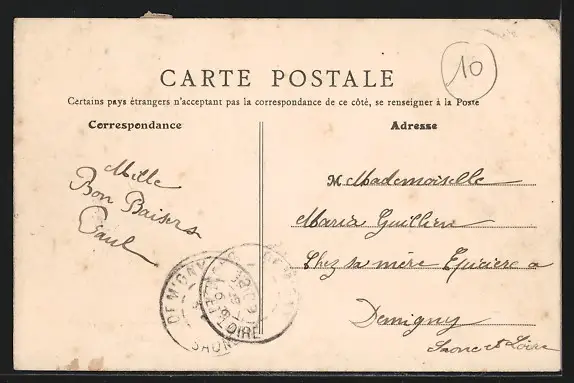 10
CARTE POSTALE
Certains pays étrangers n'acceptant pas la correspondance de ce côté, se renseigner à la Poste
Correspondance
Adresse
Mille
Bon Baisers
Paul
M Mademoiselle
Maria Guillien
Chez sa mère Epiciere a
Demigny
Saone et Loire
DEMIGNY
SAONE
LOIRE
DEMIGNY